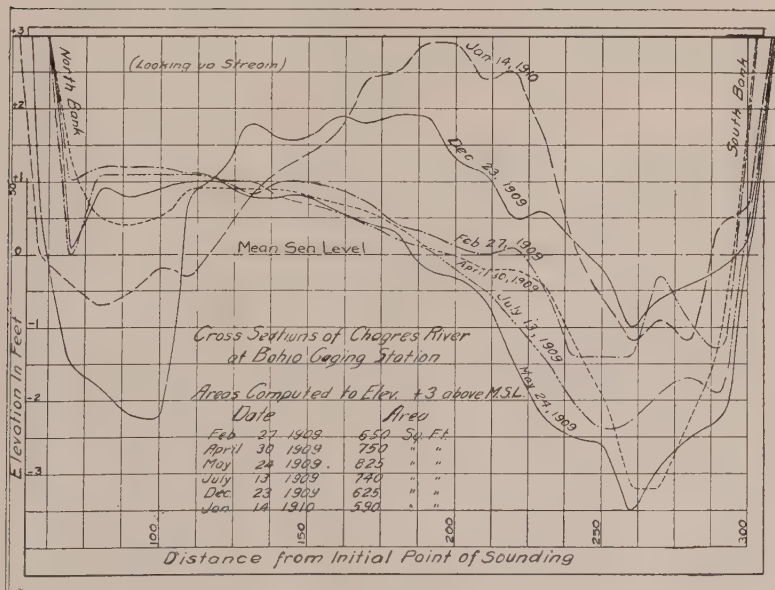 +3
+2
+1
0
-1
-2
-3
50
Elevation In Feet
North Bank
(Looking up Stream)
Jan 14, 1910
Dec 23, 1909
South Bank
Mean Sea Level
Feb 27, 1909
April 30, 1909
July 13, 1909
May 24, 1909
Cross Sections of Chagres River
at Bohio Gaging Station
Areas Computed to Elev. +3 above M.S.L.
Date Area
Feb 27 1909 650 Sq. Ft.
April 30 1909 750 " "
May 24 1909. 825 " "
July 13 1909 740 " "
Dec. 23 1909 625 " "
Jan 14 1910 590 " "
100
150
200
250
300
Distance from Initial Point of Sounding